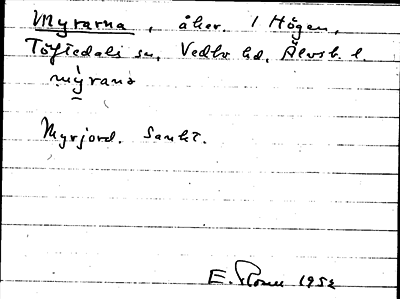 Myrarna, åker. 1 Högen,
Töftedals sn, Vedbo hd, Älvsb. l.
myrana
Myrjord. Sankt.
E. Rosell 1952